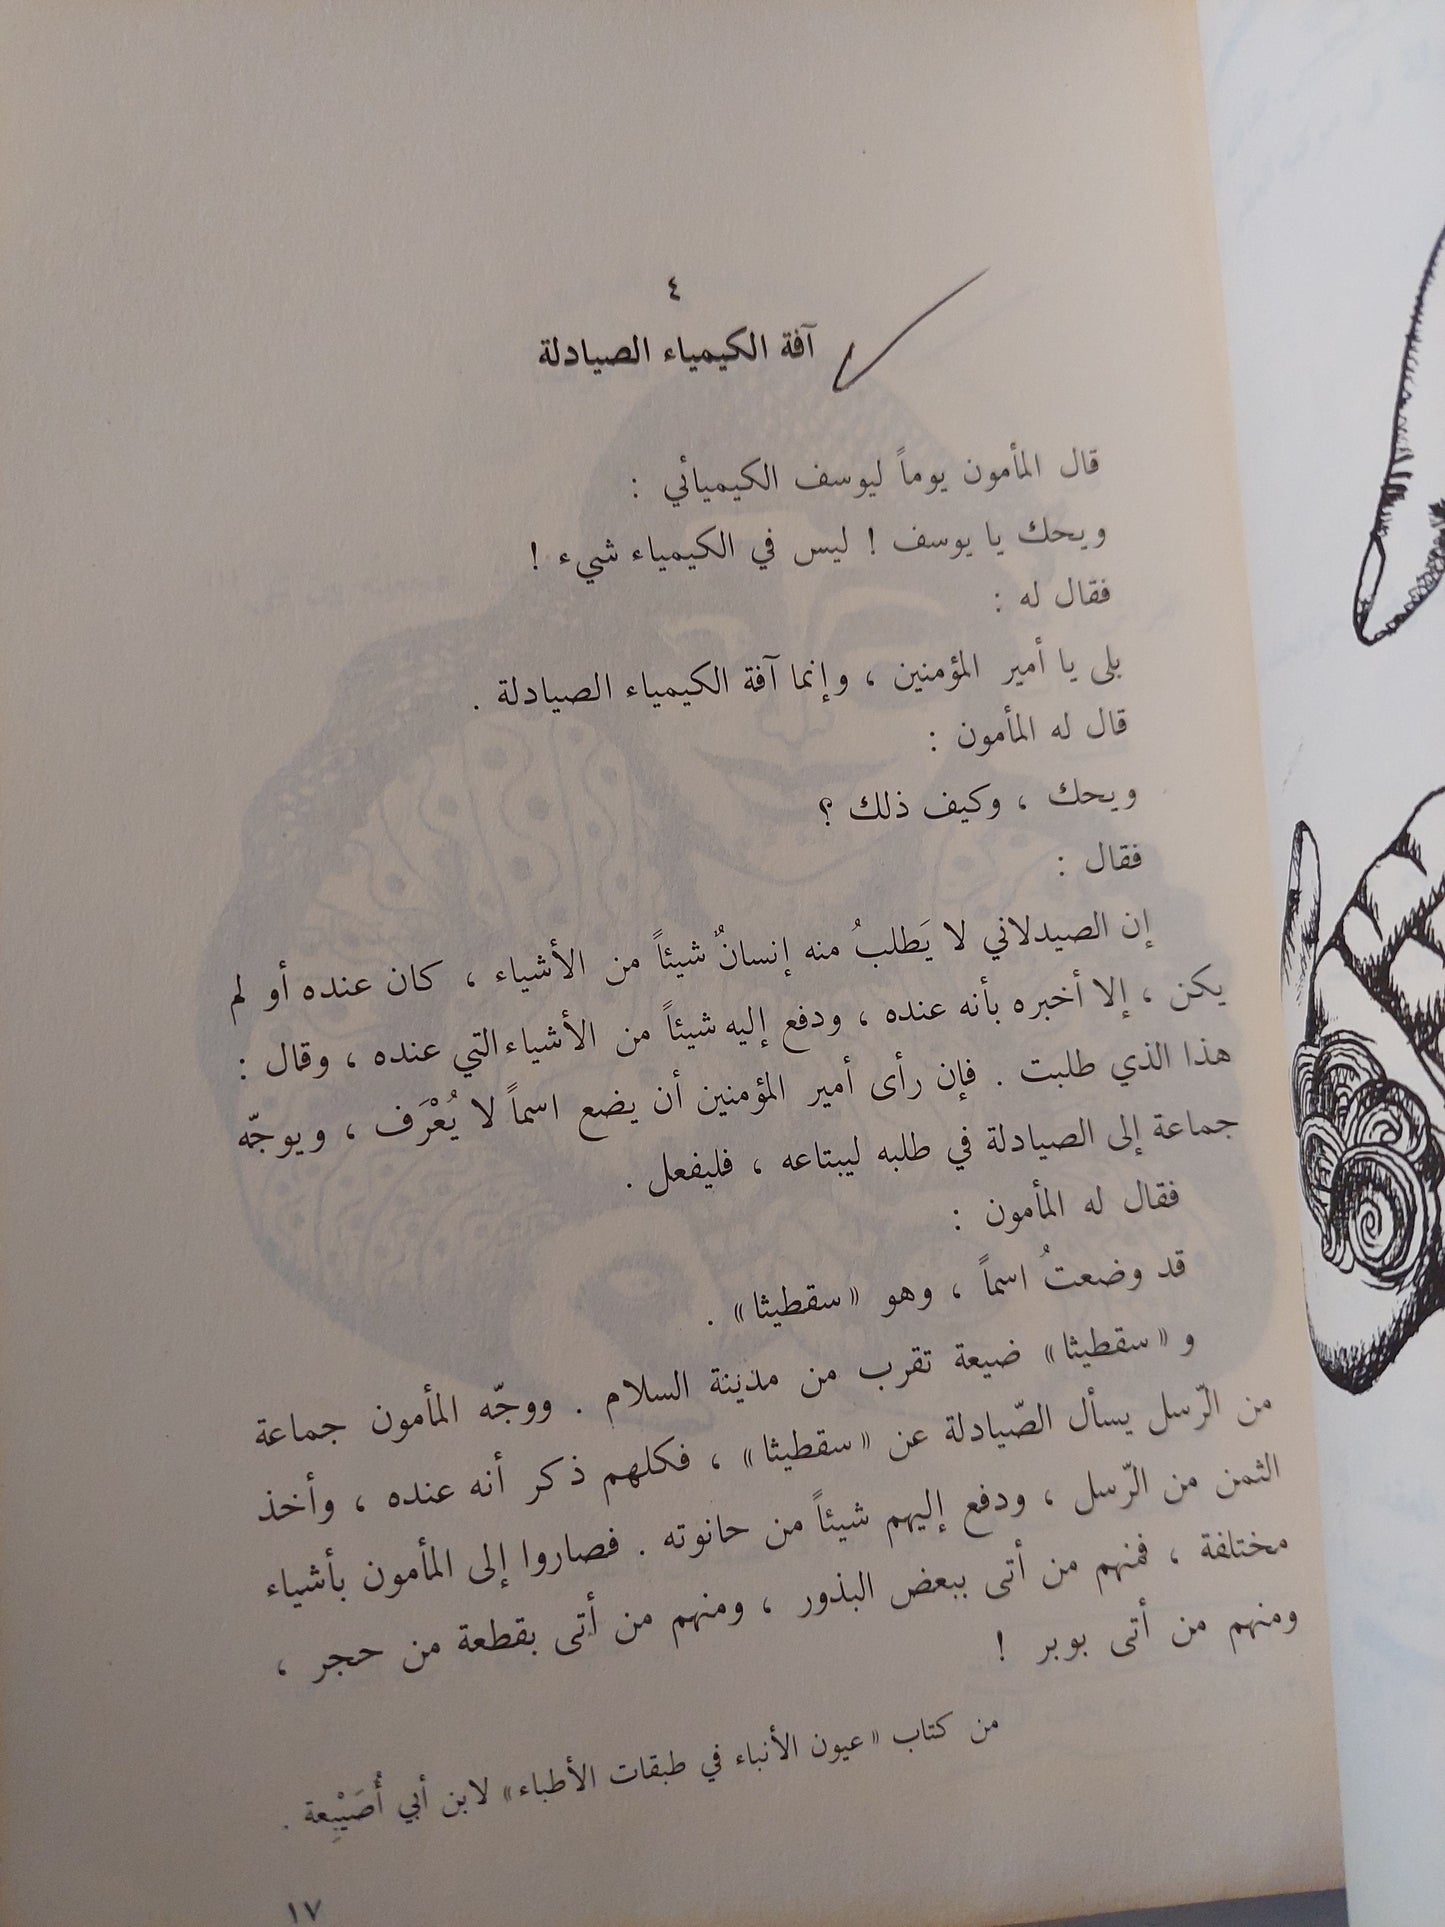 ٤
آفة الكيمياء الصيادلة
قال المأمون يوماً ليوسف الكيميائي :
ويحك يا يوسف ! ليس في الكيمياء شيء !
فقال له :
بلى يا أمير المؤمنين ، وإنما آفة الكيمياء الصيادلة .
قال له المأمون :
ويحك ، وكيف ذلك ؟
فقال :
إن الصيدلاني لا يَطلبُ منه إنسانٌ شيئاً من الأشياء ، كان عنده أو لم
يكن ، إلا أخبره بأنه عنده ، ودفع إليه شيئاً من الأشياء التي عنده ، وقال :
هذا الذي طلبت . فإن رأى أمير المؤمنين أن يضع اسماً لا يُعْرَف ، ويوجّه
جماعة إلى الصيادلة في طلبه ليبتاعه ، فليفعل .
فقال له المأمون :
قد وضعتُ اسماً ، وهو «سقطيثا» .
و «سقطيثا» ضيعة تقرب من مدينة السلام . ووجّه المأمون جماعة
من الرّسل يسأل الصّيادلة عن «سقطيثا» ، فكلهم ذكر أنه عنده ، وأخذ
الثمن من الرّسل ، ودفع إليهم شيئاً من حانوته . فصاروا إلى المأمون بأشياء
مختلفة ، فمنهم من أتى ببعض البذور ، ومنهم من أتى بقطعة من حجر ،
ومنهم من أتى بوبر !
من كتاب «عيون الأنباء في طبقات الأطباء» لابن أبي أُصَيْبِعة .
١٧